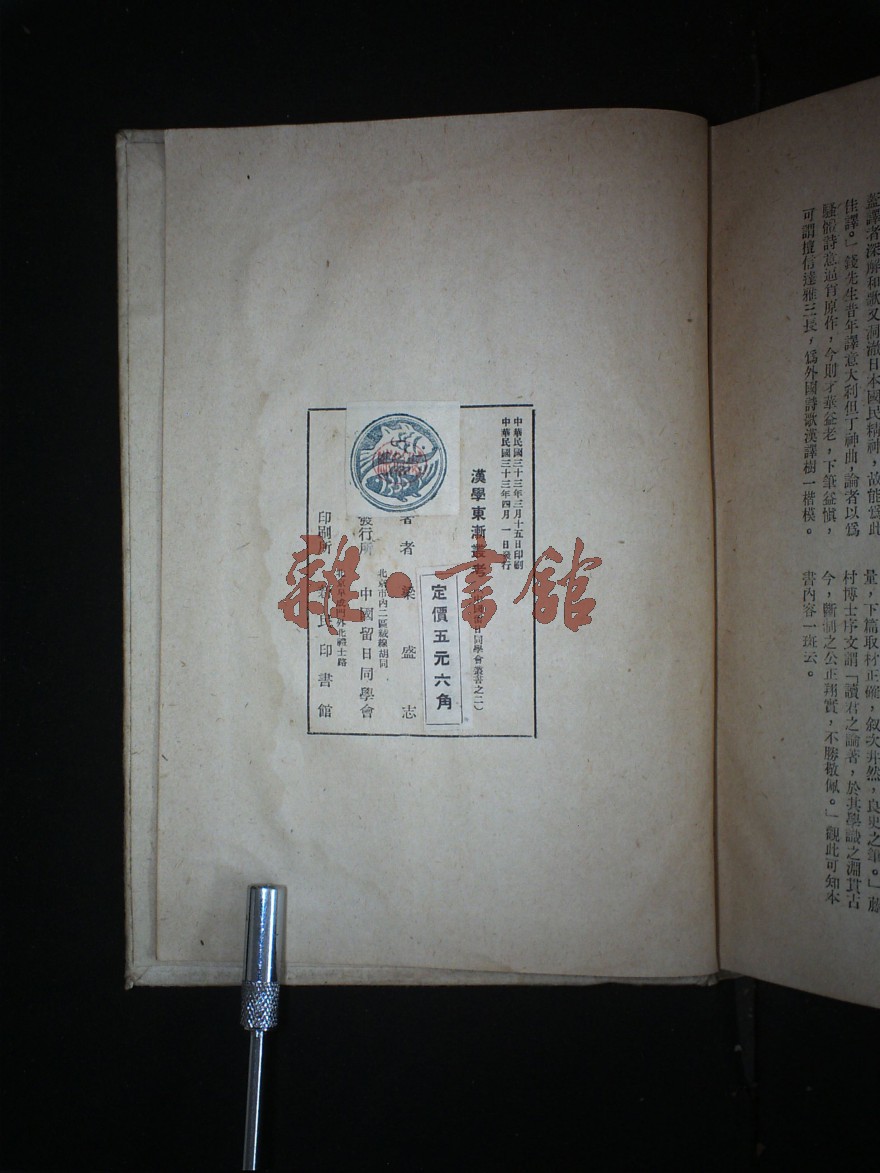 蓋譯者深解和歌又洞澈日本國民精神，故能爲此
佳譯。」錢先生昔年譯意大利但丁神曲，論者以爲
騷體詩意逼肖原作，今則才華益老，下筆益愼，
可謂擅信達雅三長，爲外國詩歌漢譯樹一楷模。
量，下篇取材正確，叙次井然，良史之筆。」藤
村博士序文謂「讀君之論著，於其學識之淵貫古
今，斷制之公正翔實，不勝敬佩。」觀此可知本
書內容一斑云。
中華民國三十三年三月十五日印刷
中華民國三十三年四月一日發行
漢學東漸叢考
留日同學會叢書之二）
定價五元六角
著者 梁盛志
北京市內二區絨線胡同
發行所 中國留日同學會
北京阜成門外北禮士路
印刷所 民印書館
雜·書館